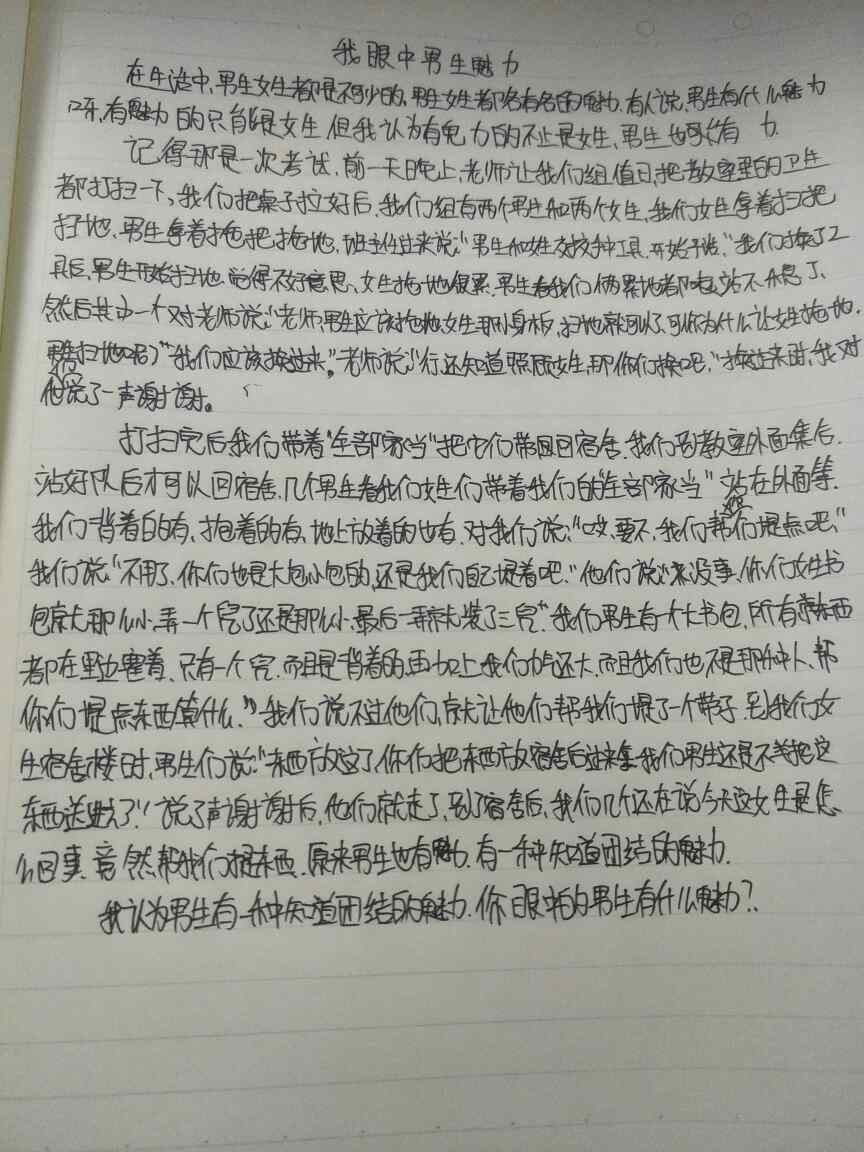 我眼中男生魅力
在生活中,男生女生都是不可少的,男生女生都各有各的魅力.有人说,男生有什么魅力
呀,有魅力的只能是女生.但我认为有魅力的不止是女生,男生也有力.
记得那是一次考试,前一天晚上,老师让我们组值日,把教室里的卫生
都打扫一下,我们把桌子拉好后,我们组有两个男生和两个女生,我们女生拿着扫把
扫地,男生拿着拖把拖地,班主任过来说:"男生和女生交换工具,开始干活."我们换了工
具后,男生开始扫地,觉得不好意思,女生拖地很累,男生看我们俩累地都站不了,
然后其中一个对老师说:"老师,男生应该拖地,女生那小身板,扫地就可以了,可你为什么让女生拖地,
男生扫地呢?""我们应该换过来."老师说:"行,还知道照顾女生,那你们换吧."换过来时,我对
他说了一声谢谢。
打扫完后我们带着"全部家当"把它们带回宿舍.我们到教室外面集合.
站好队后才可以回宿舍.几个男生看我们女生们带着我们的"全部家当"站在外面等.
我们背着的有,抱着的有,地上放着的也有.对我们说:"哎,要不,我们帮你们提点吧,"
我们说:"不用了,你们也是大包小包的,还是我们自己提着吧."他们说:"来没事,你们女生书
包就大那么小,弄一个完了还是那么小,最后一弄就装了三完"我们男生有个大书包,所有东西
都在里边塞着,只有一个完.而且是背着的,再加上我们力气还大,而且我们也不是那种人,帮
你们提点东西算什么."我们说不过他们,就让他们帮我们提了一个袋子.到我们女
生宿舍楼时,男生们说:"东西放这了,你们把东西放宿舍后过来拿,我们男生还是不把这
东西送进去了!"说了声谢谢后,他们就走了,到了宿舍后,我们几个还在说今天这女生是怎
么回事,竟然帮我们提东西.原来男生也有魅力.有一种知道团结的魅力.
我认为男生有一种知道团结的魅力.你眼中的男生有什么魅力?